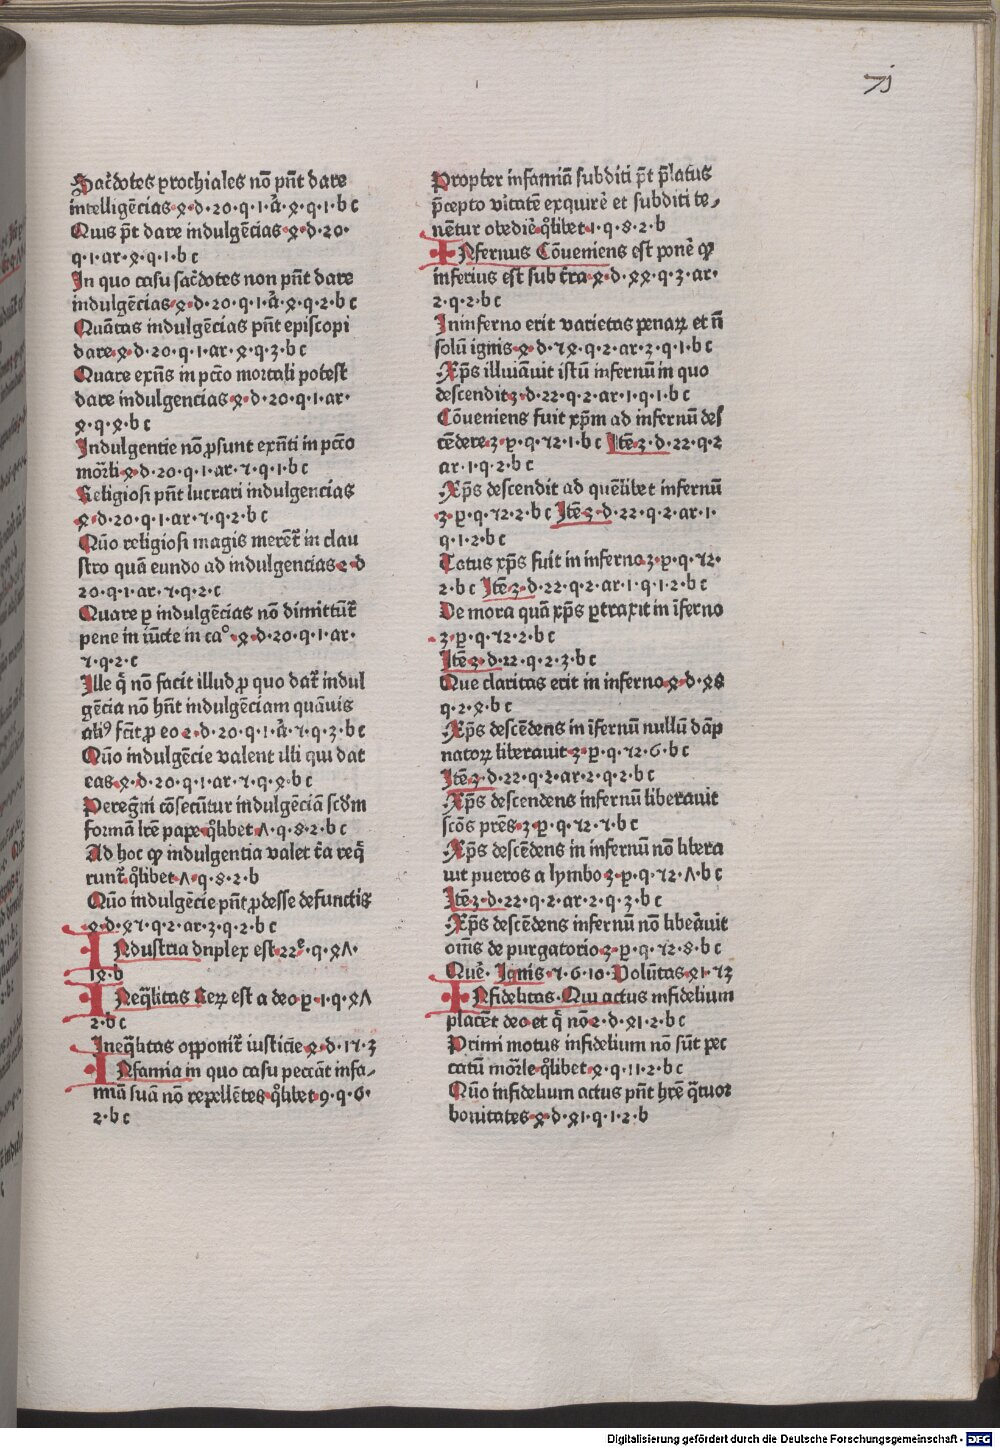 71
Sac̄dotes ꝑrochiales nō pn̄t dare
intelligēcias·ꝝ·d·20·q·1·ā·ꝝ·q·1·b c
Quis pt̄ dare indulgēcias·ꝝ·d·20·
q·1·ar·ꝝ·q·1·b c
In quo casu sac̄dotes non pn̄t dare
indulgēcias·ꝝ·d·20·q·1·ā·ꝝ·q·2·b c
Quātas indulgēcias pn̄t episcopi
dare·ꝝ·d·20·q·1·ar·ꝝ·q·3·b c
Quare exn̄s in pctō mortali potest
dare indulgencias·ꝝ·d·20·q·1·ar·
ꝝ·q·ꝝ·b c
Indulgentie nō ꝓsunt exn̄ti in pctō
mōrli·ꝝ·d·20·q·1·ar·7·q·1·b c
Religiosi pn̄t lucrari indulgencias
·ꝝ·d·20·q·1·ar·7·q·2·b c
Qūo religiosi magis meret̄ in clau
stro quā eundo ad indulgencias·2·d
20·q·1·ar·7·q·2·c
Quare ꝑ indulgēcias nō dimittūt̄
pene in iūcte in caº·ꝝ·d·20·q·1·ar·
7·q·2·c
Ille q̄ nō facit illud ꝓ quo dat̄ indul
gēcia nō hn̄t indulgēciam quāuis
aliꝰ fc̄it ꝓ eo 2·d·20·q·1·ā·7·q·3·b c
Qūo indulgēcie valent illi qui dat
eas·ꝝ·d·20·q·1·ar·7·q·ꝝ·b c
Peregn̄i cōsecūtur indulgēciā scd̄m
formā lr̄e pape·q̊libet·Λ·q·8·2·b c
Ad hoc ꝙ indulgentia valet t̄ia req̄
runt̄·q̊libet·Λ·q·8·2·b
Qūo indulgēcie pn̄t ꝓdesse defunctis
·ꝝ·d·ꝝ7·q·2·ar·3·q·2·b c
INdustria duplex est·22ͤ·q·ꝝΛ·
1ꝝ·b
INeq̄litas Reꝝ est a deo·ꝑ·1·q·ꝝΛ
2·b c
Ineq̄litas opponit̄ iusticie·ꝝ·d·17·3
INfamia in quo casu peccāt infa⸗
miā suā nō repellētes·q̊libet·9·q·6·
2·b c
Propter infamiā subditi pt̄ p̄latus
p̄cepto vītatē exquirē et subditi te⸗
nētur obediē·q̊libet·1·q·8·2·b
INfernus Cōueniens est ponē ꝙ
inferius est sub tr̄a·ꝝ·d·ꝝꝝ·q·3·ar·
2·q·2·b c
Ininferno erit varietas penaꝝ et n̄
solū ignis·ꝝ·d·7ꝝ·q·2·ar·3·q·1·b c
Xp̄s illuiāuit istū infernū in quo
descendit·3·d·22·q·2·ar·1·q·1·b c
Cōueniens fuit xp̄m ad infernū des
cēdere·3·ꝑ·q·72·1·b c Itē·3·d·22·q·2
ar·1·q·2·b c
Xp̄s descendit ad quēlibet infernū
·3·ꝑ·q·72·2·b c Itē·3·d·22·q·2·ar·1·
q·1·2·b c
Totus xp̄s fuit in inferno·3·ꝑ·q·72·
2·b c Itē·3·d·22·q·2·ar·1·q·1·2·b c
De mora quā xp̄s ꝓtraxit in īferno
·3·ꝑ·q·72·2·b c
Itē·3·d·22·q·2·3·b c
Que claritas erit in inferno·ꝝ·d·ꝝ8
q·2·ꝝ·b c
Xp̄s descēdens in īfernū nullū dāp
natoꝝ liberauit·3·ꝑ·q·72·6·b c
Itē·3·d·22·q·2·ar·2·q·2·b c
Xp̄s descendens infernū liberauit
scōs pr̄es·3·ꝑ·q·72·7·b c
Xp̄s descēdens in infernū nō libera
uit pueros a lymbo·3·ꝑ·q·72·Λ·b c
Itē·3·d·22·q·2·ar·2·q·3·b c
Xp̄s descēdens infernū nō libēauit
om̄s de purgatorio·3·ꝑ·q·72·8·b c
Quē·Ignis·7·6·10·Volūtas·ꝝ1·73
INfidelitas·Qui actus infidelium
placēt deo et q̄ nō·2·d·ꝝ1·2·b c
Primi motus infidelium nō sūt pec
catū mōrle·q̊libet·ꝝ·q·11·2·b c
Qūo infidelium actus pn̄t hr̄e q̄tuor
bonitates·ꝝ·d·ꝝ1·q·1·2·b
Digitalisierung gefördert durch die Deutsche Forschungsgemeinschaft - DFG